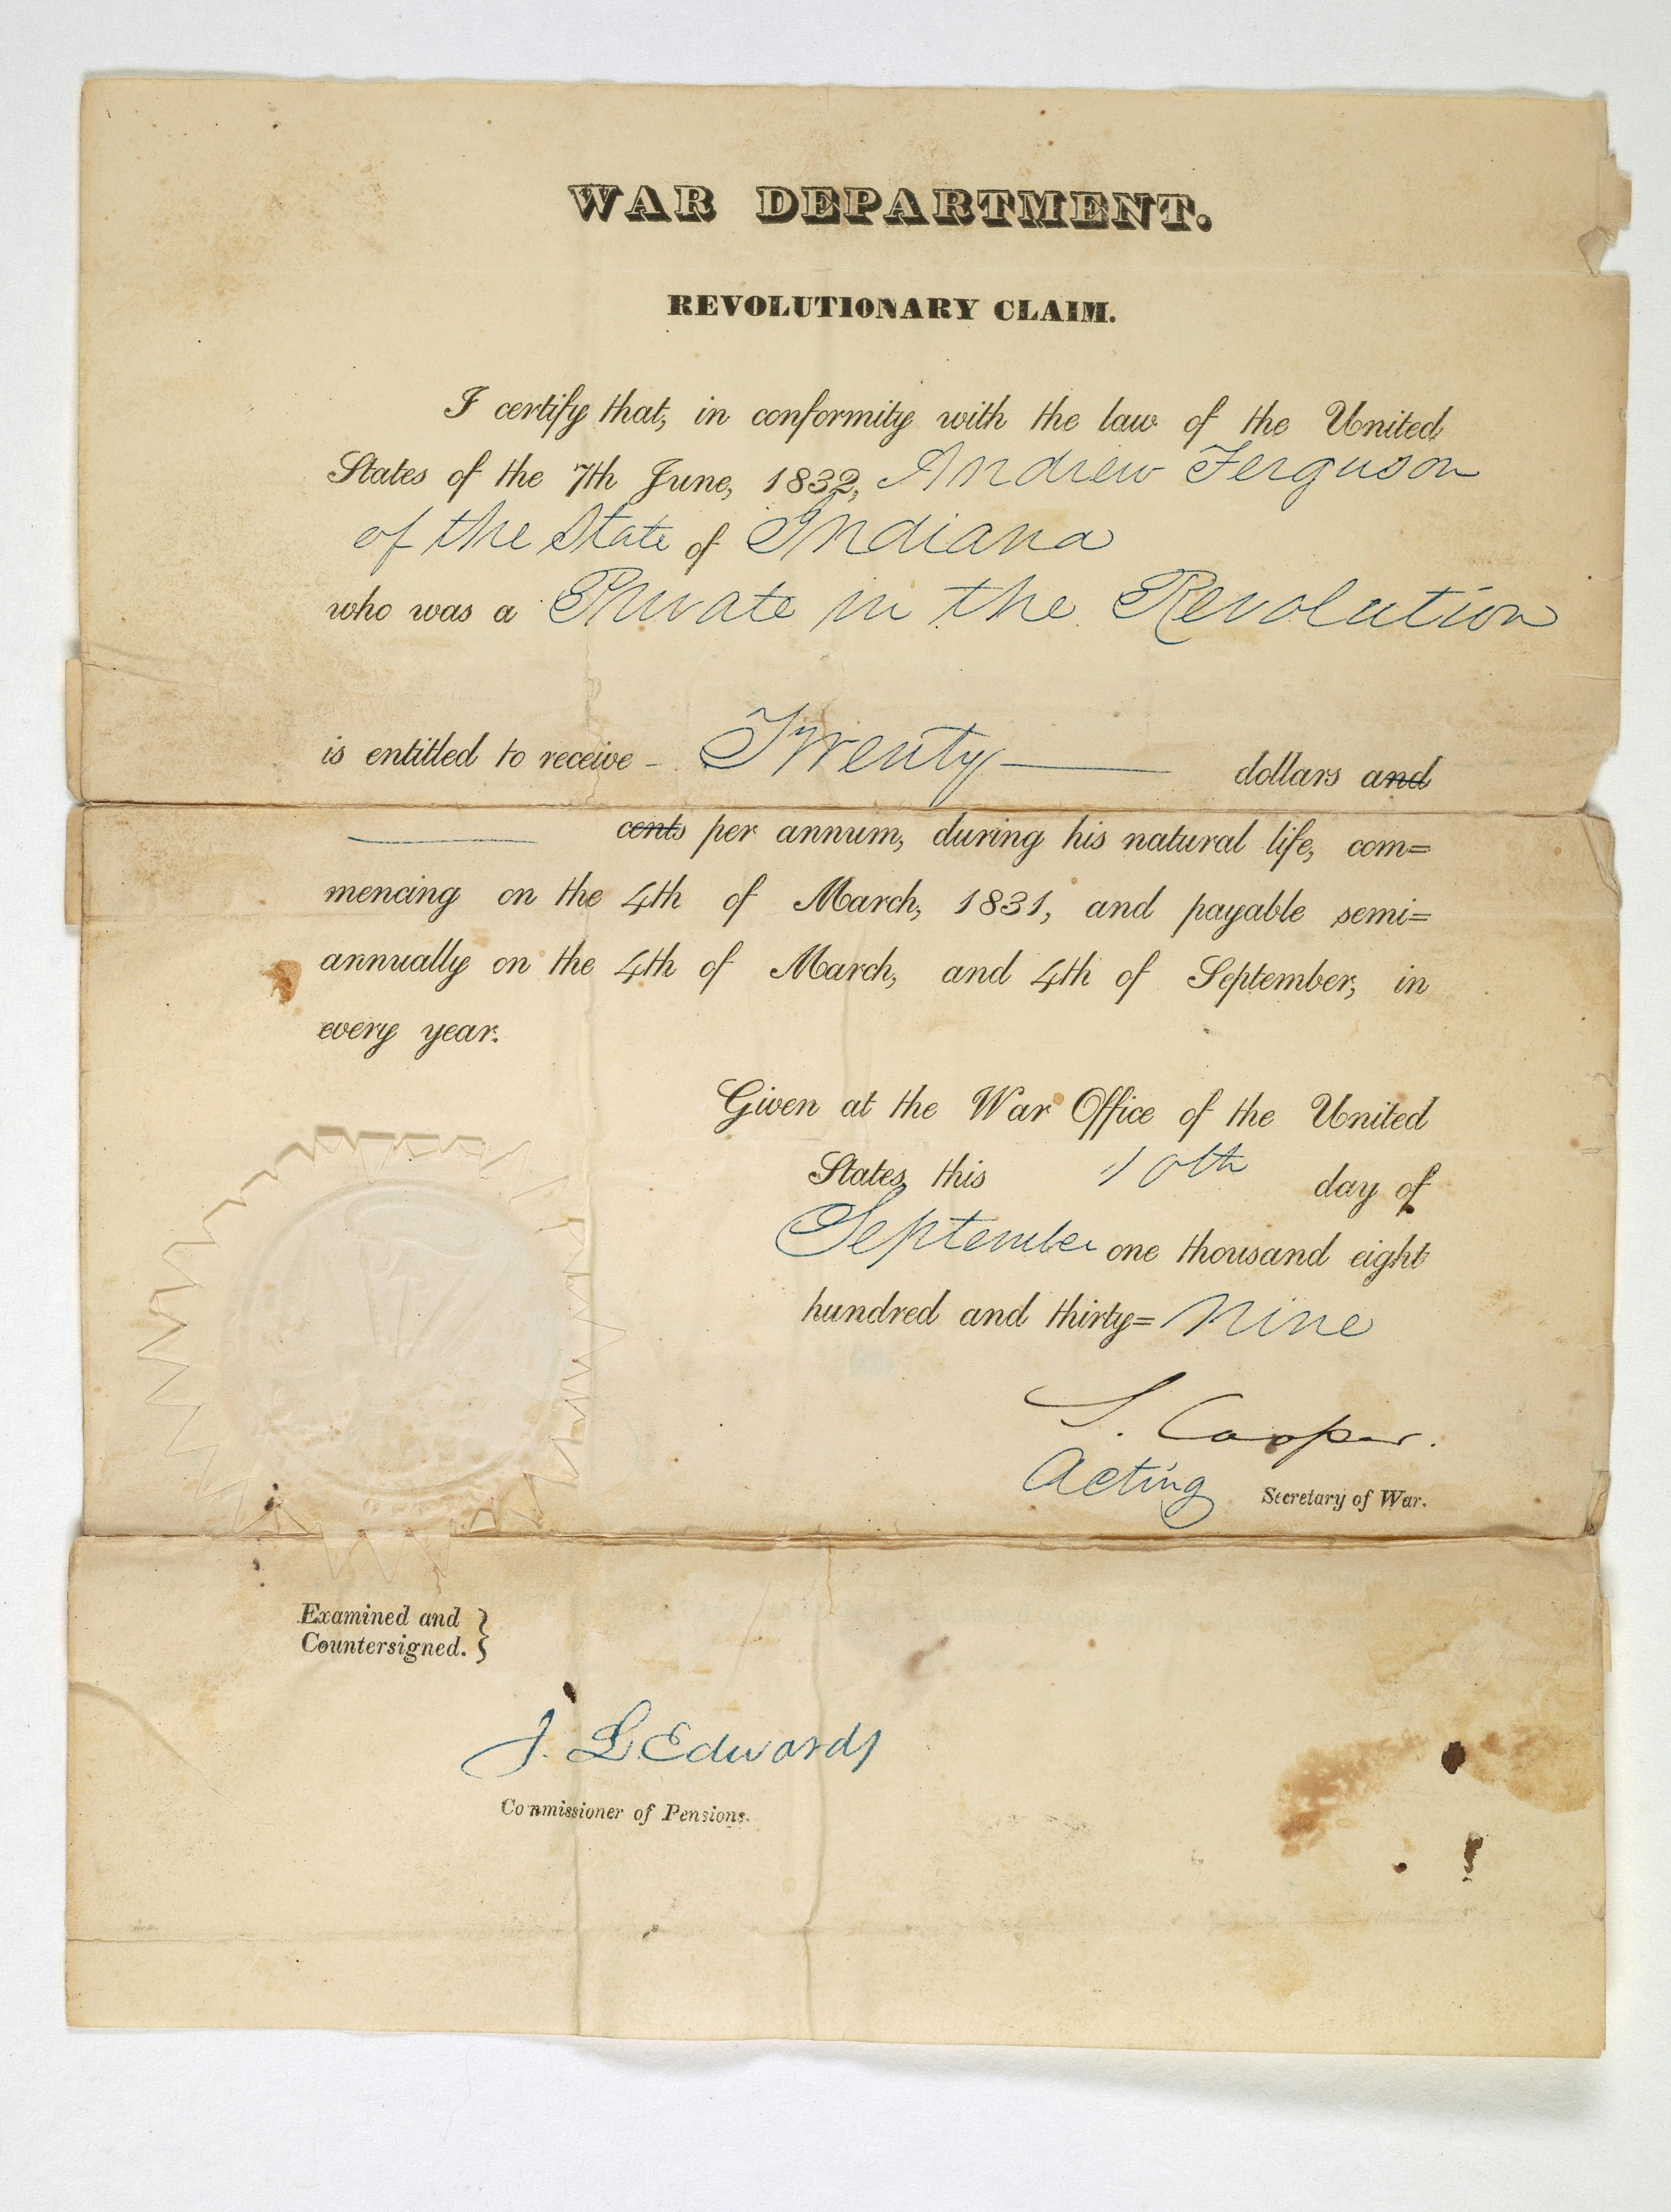 WAR DEPARTMENT.
REVOLUTIONARY CLAIM.
I certify that, in conformity with the law of the United
States of the 7th June, 1832, Andrew Ferguson
of the State of Indiana
who was a Private in the Revolution
is entitled to receive - Twenty dollars and
cents per annum, during his natural life, com=
mencing on the 4th of March, 1831, and payable semi=
annually on the 4th of March, and 4th of September, in
every year.
Given at the War Office of the United
States, this 10th day of
September one thousand eight
hundred and thirty= nine
S. Cooper.
Acting Secretary of War.
Examined and
Countersigned. }
J. L Edwards
Commissioner of Pensions.